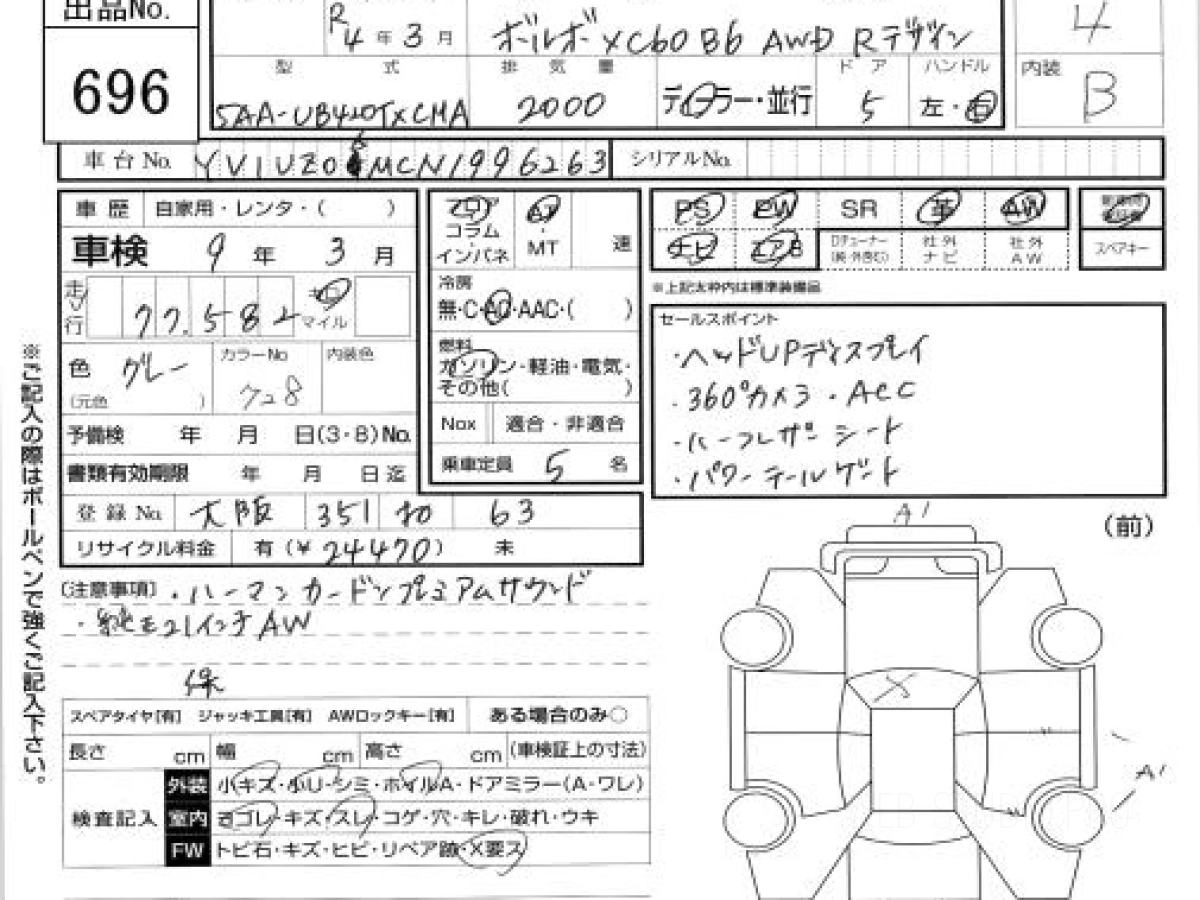 出品No.
696
R4年3月
ボルボ XC60 B6 AWD Rデザイン
4
型式
排気量
ドア
ハンドル
内装
5AA-UB420TXCMA
2000
ディーラー・並行
5
左・右
B
車台No. YV1UZ06MCN1996263
シリアルNo.
車歴 自家用・レンタ・( )
車検 9年3月
走行 77,582 キロ マイル
色 グレー
(元色 )
カラーNo 728
内装色
予備検 年 月 日(3・8)No.
書類有効期限 年 月 日迄
登録No. 大阪 351 63
リサイクル料金 有(¥24470) 未
フロア
コラム
インパネ
AT
・
MT
速
冷房
無・C・AC・AAC・( )
燃料
ガソリン・軽油・電気・
その他( )
Nox 適合・非適合
乗車定員 5 名
PS PW SR 革 AW
ナビ エアB Dチューナー 社外ナビ 社外AW
スペアキー
※上記太枠内は標準装備品
セールスポイント
・ヘッドUPディスプレイ
・360°カメラ・ACC
・ハーフレザーシート
・パワーテールゲート
[注意事項] ・ハーマンカードンプレミアムサウンド
・純正21インチAW
スペアタイヤ[有] ジャッキ工具[有] AWロックキー[有] ある場合のみ○
長さ cm 幅 cm 高さ cm (車検証上の寸法)
検査記入
外装 小キズ・小U・シミ・ホイルA・ドアミラー(A・ワレ)
室内 ヨゴレ・キズ・スレ・コゲ・穴・キレ・破れ・ウキ
FW トビ石・キズ・ヒビ・リペア跡・X要ス
(前)
A1
X
A1
※ご記入の際はボールペンで強くご記入下さい。